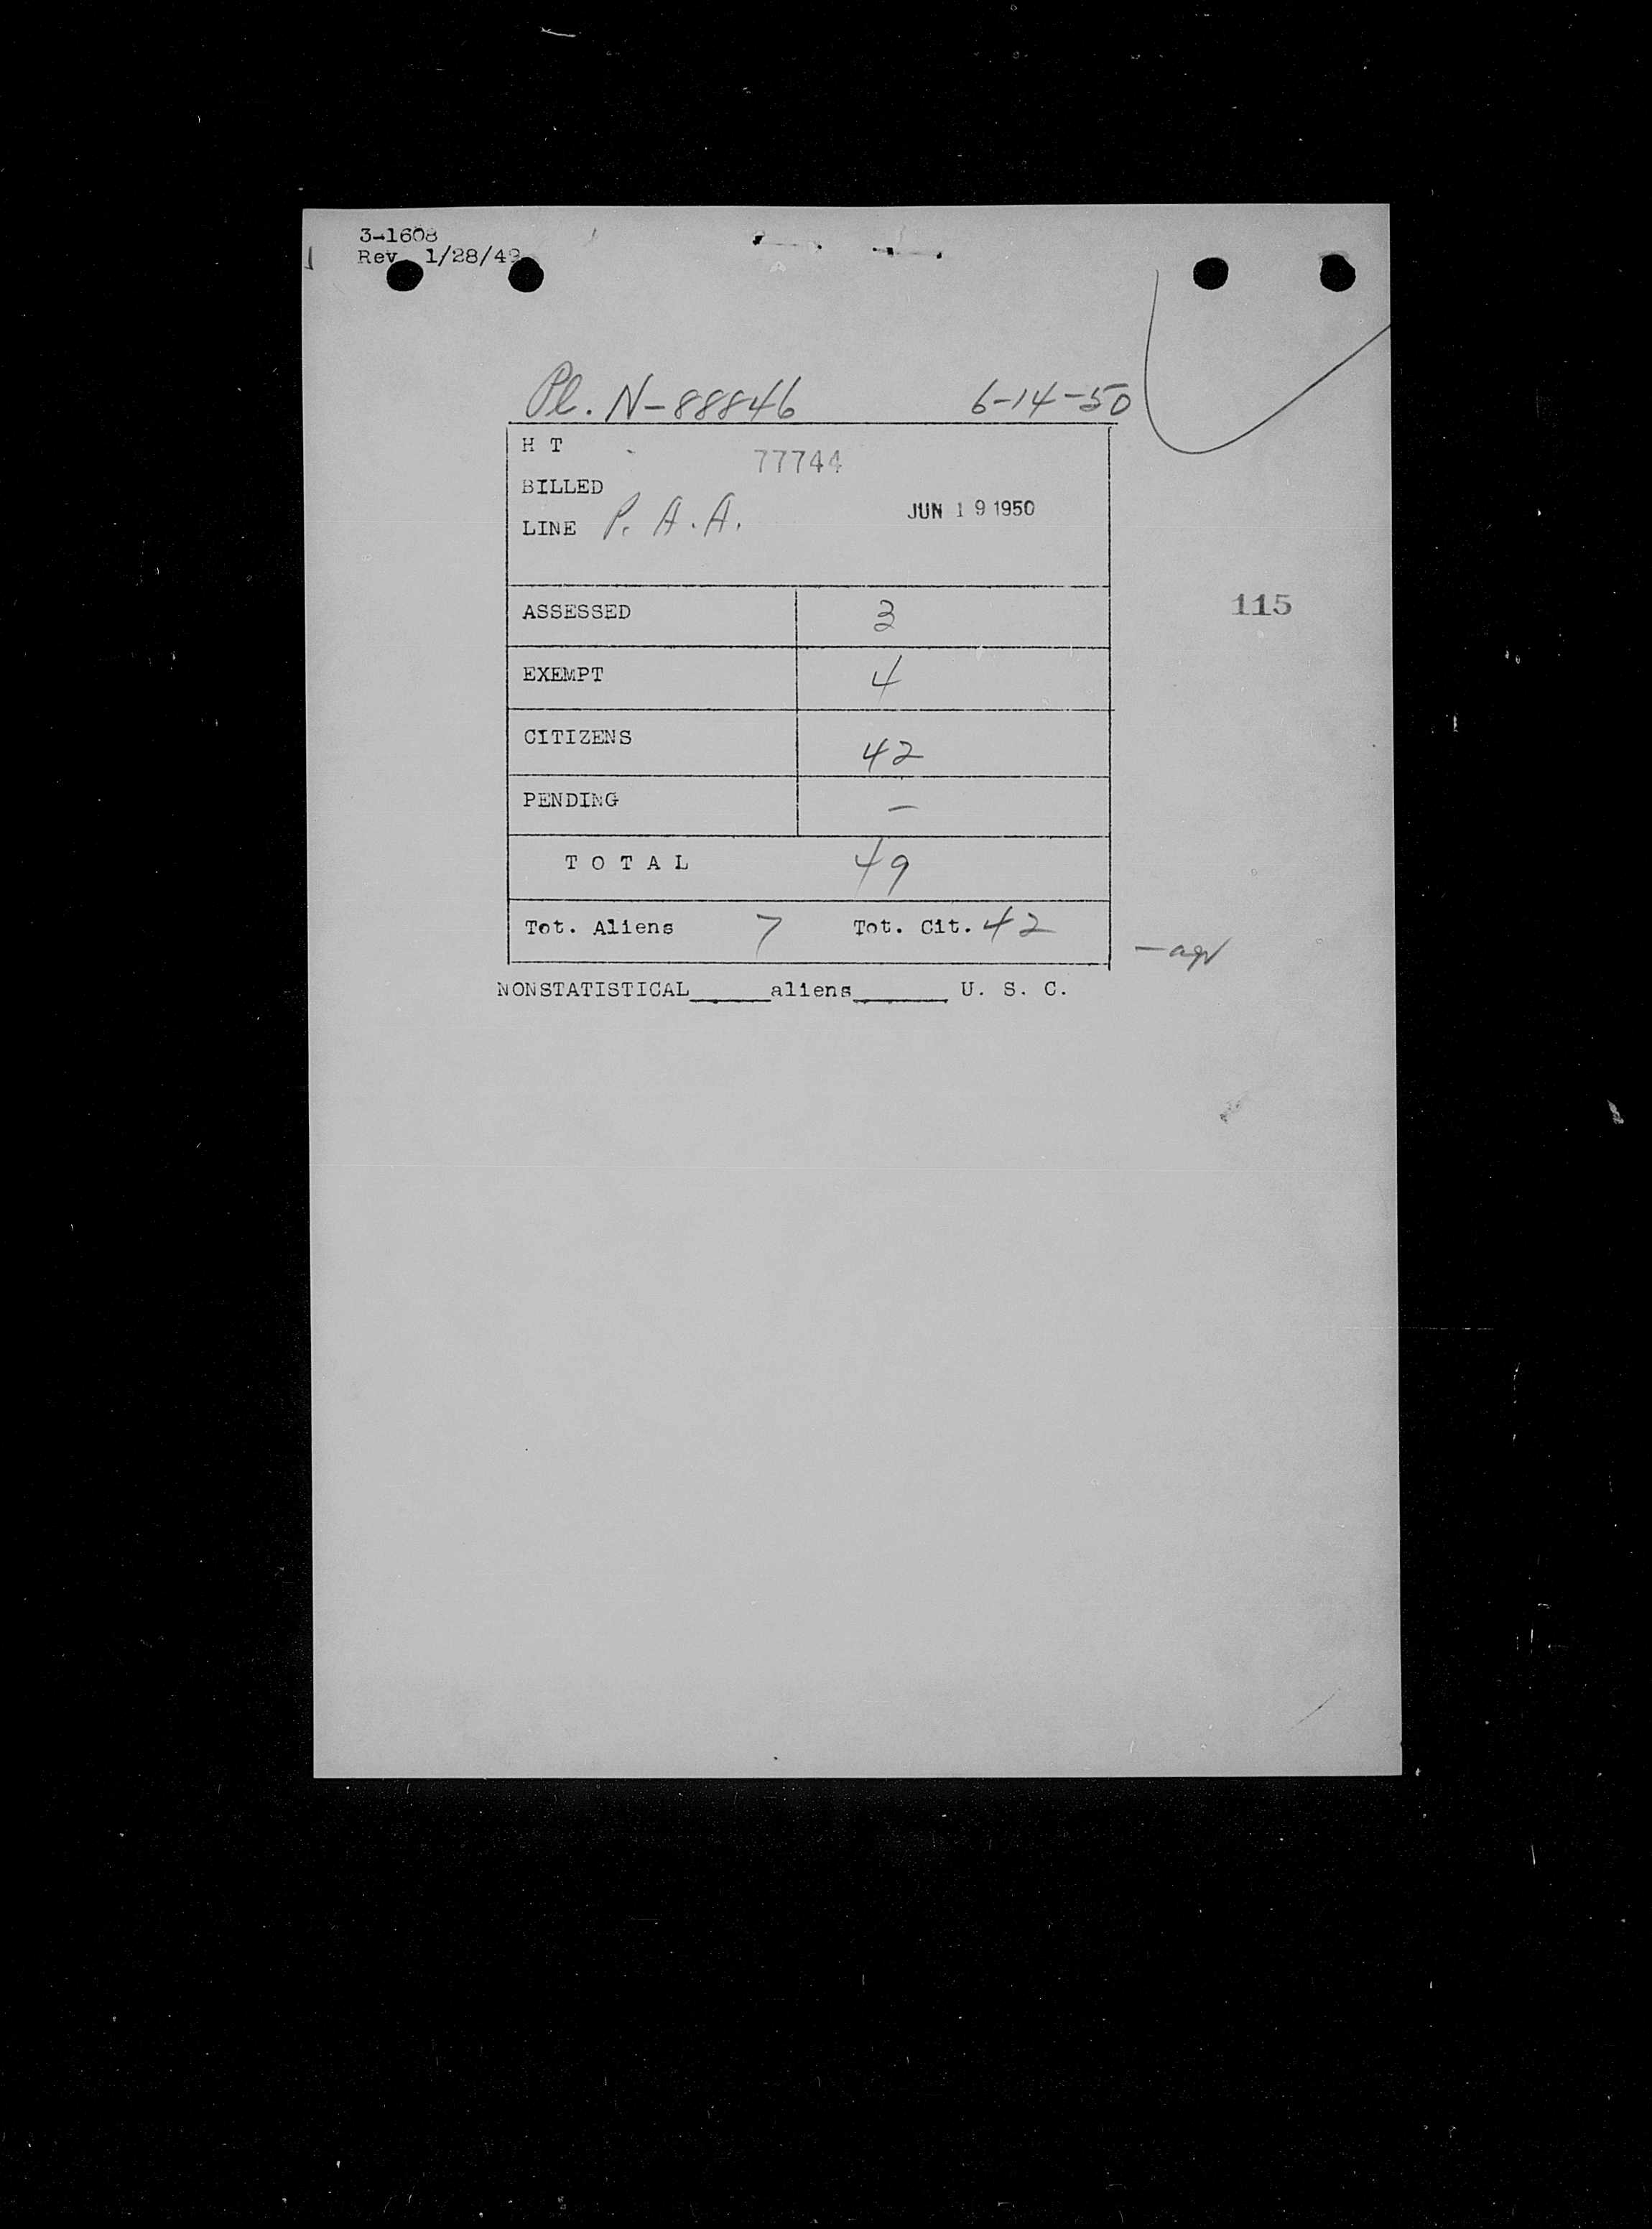 3-1608
Rev. 1/28/49
Pl. N-88846 6-14-50
H T 77744
BILLED
LINE P. A. A. JUN 19 1950
115
ASSESSED 3
EXEMPT 4
CITIZENS 42
PENDING –
T O T A L 49
Tot. Aliens 7 Tot. Cit. 42
NONSTATISTICAL______aliens_______ U. S. C.